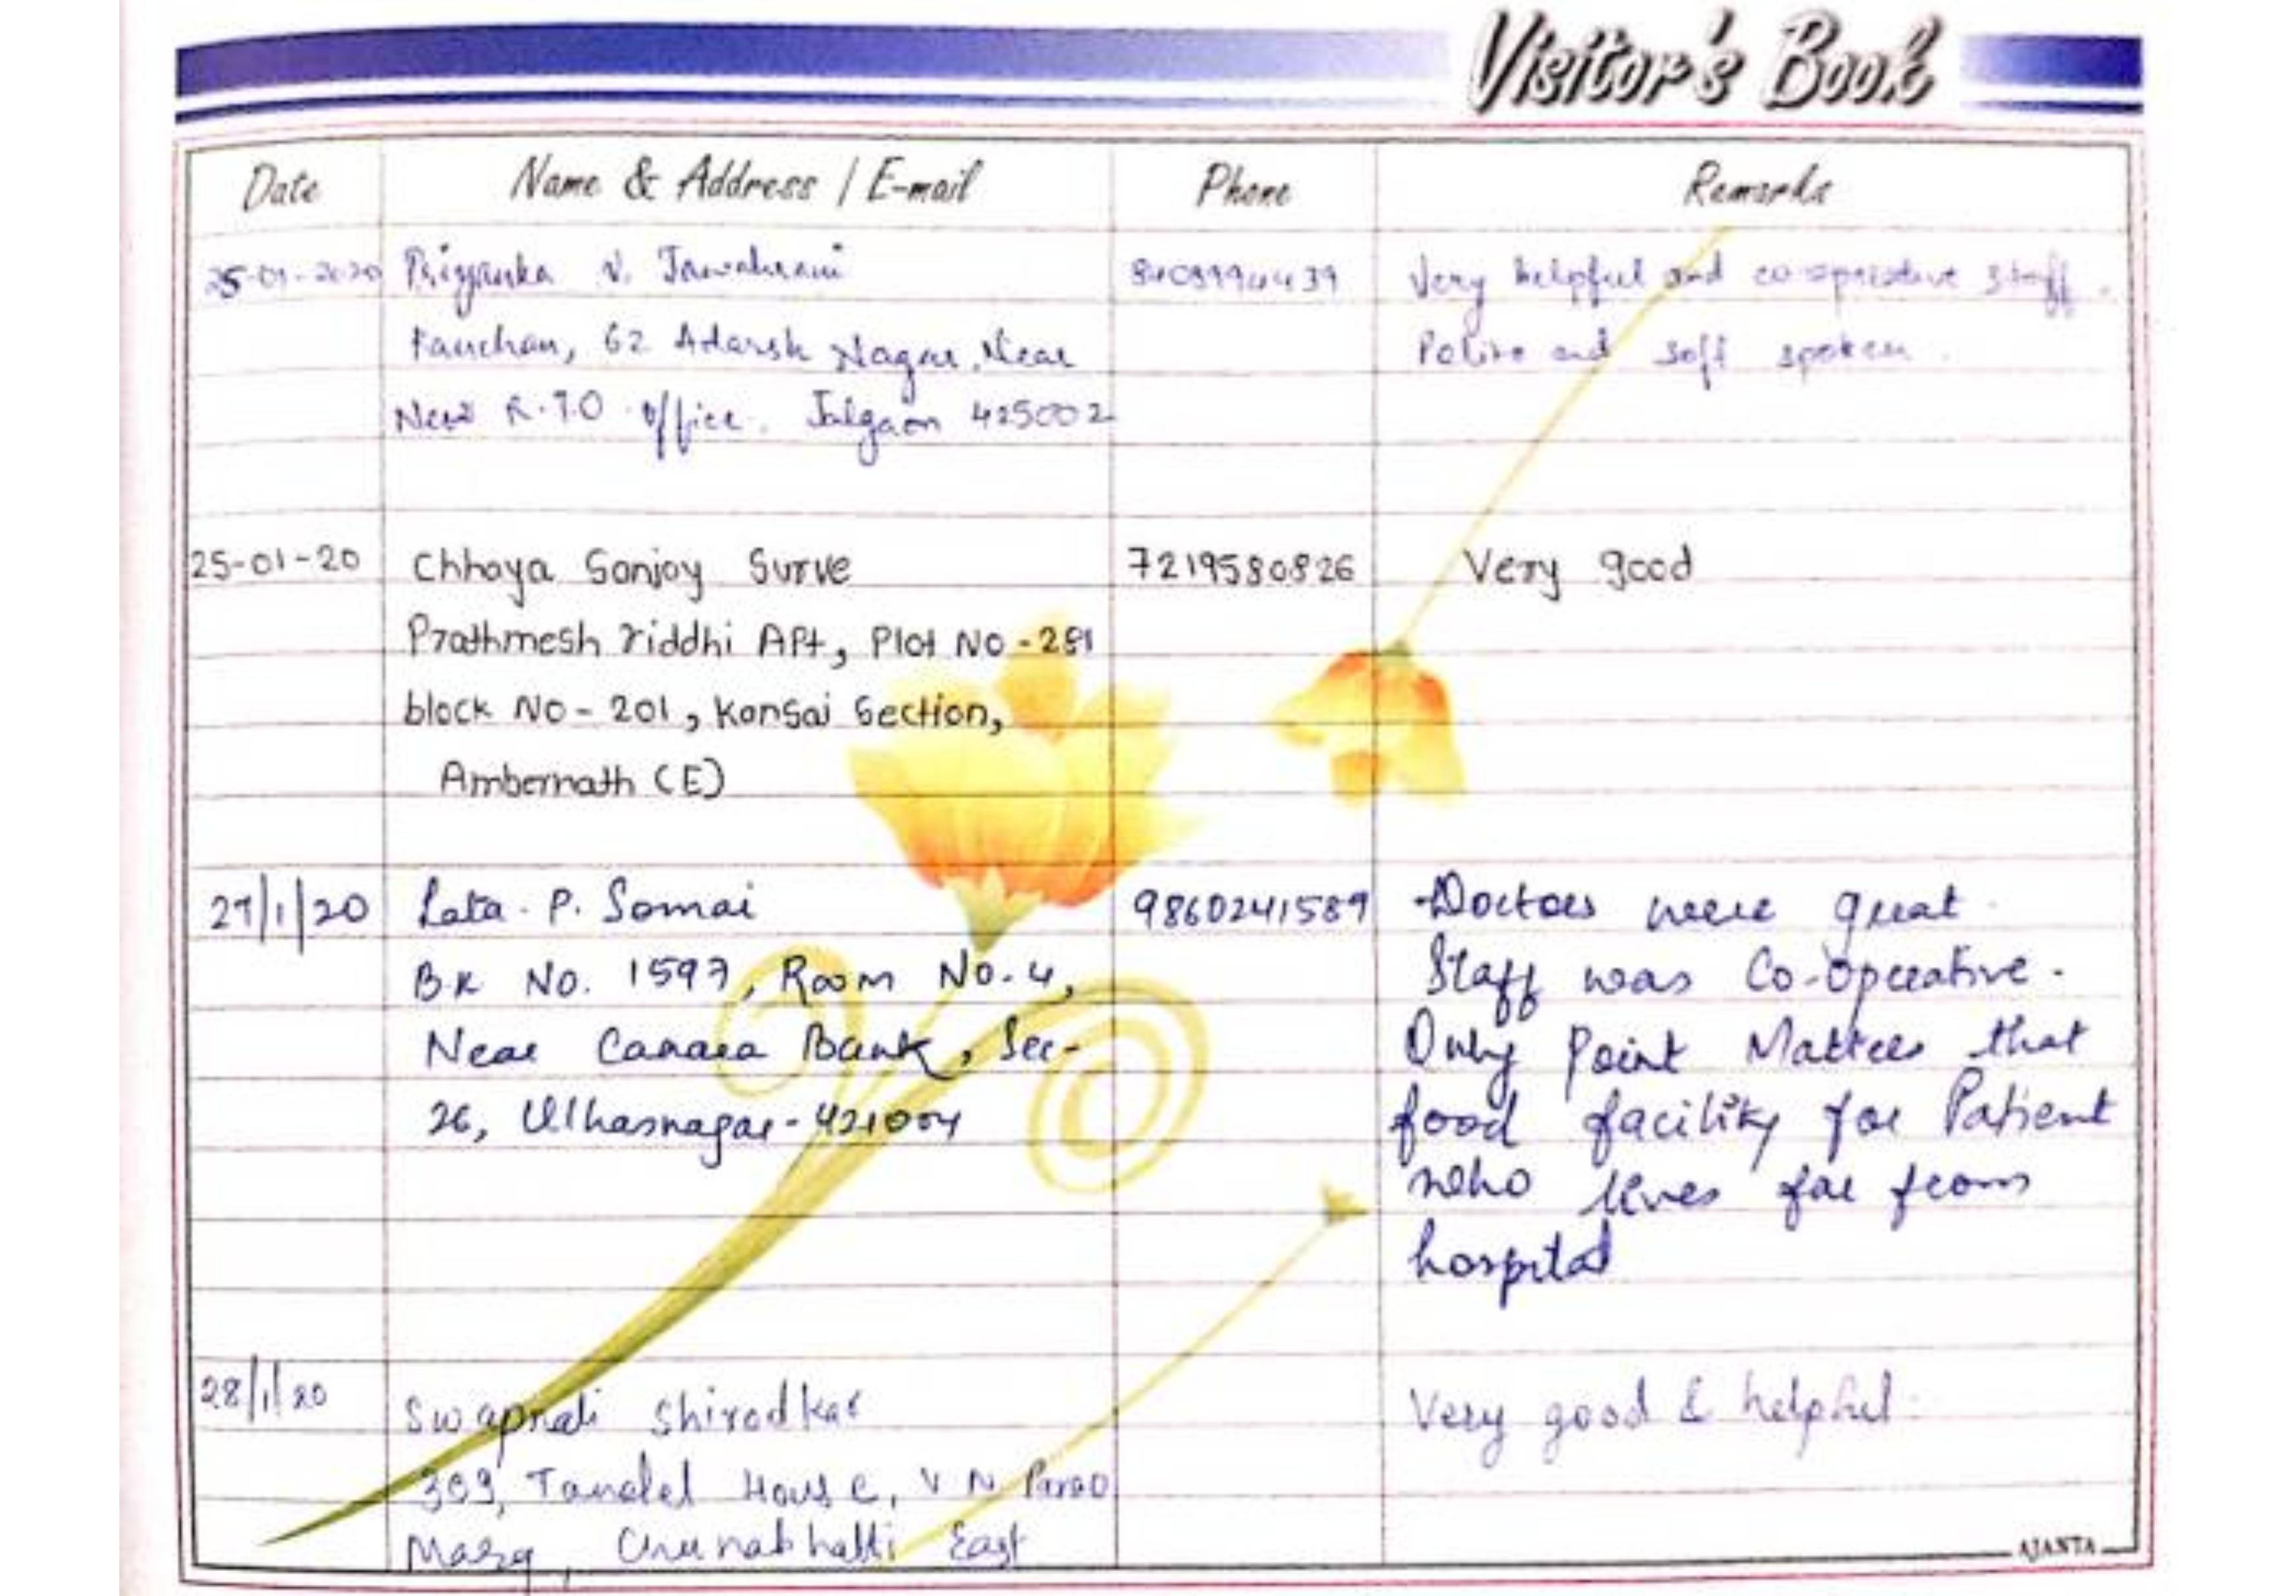 Visitor's Book
Date Name & Address / E-mail Phone Remarks
25-01-2020 Priyanka V. Jawahrani Very helpful and co-operative staff.
62 Adarsh Nagar, Near Polite and soft spoken.
Near R.T.O office. Jalgaon 425002
25-01-20 Chhaya Sanjay Surve 7219580826 Very good
Prathmesh riddhi Apt, Plot No - 281
block No - 201, Kansai Section,
Ambernath (E)
27/1/20 Lata. P. Somai 9860241589 Doctors were great.
BK No. 1597, Room No. 4, Staff was Co-operative.
Near Canara Bank, Sec- Only point Matters that
26, Ulhasnagar - 421004 food facility for Patient
who lives far from
hospital
28/1/20 Swapnali Shirodkar Very good & helpful.
309, Tandel House, V N Purao
Marg, Chunabhatti East
AJANTA